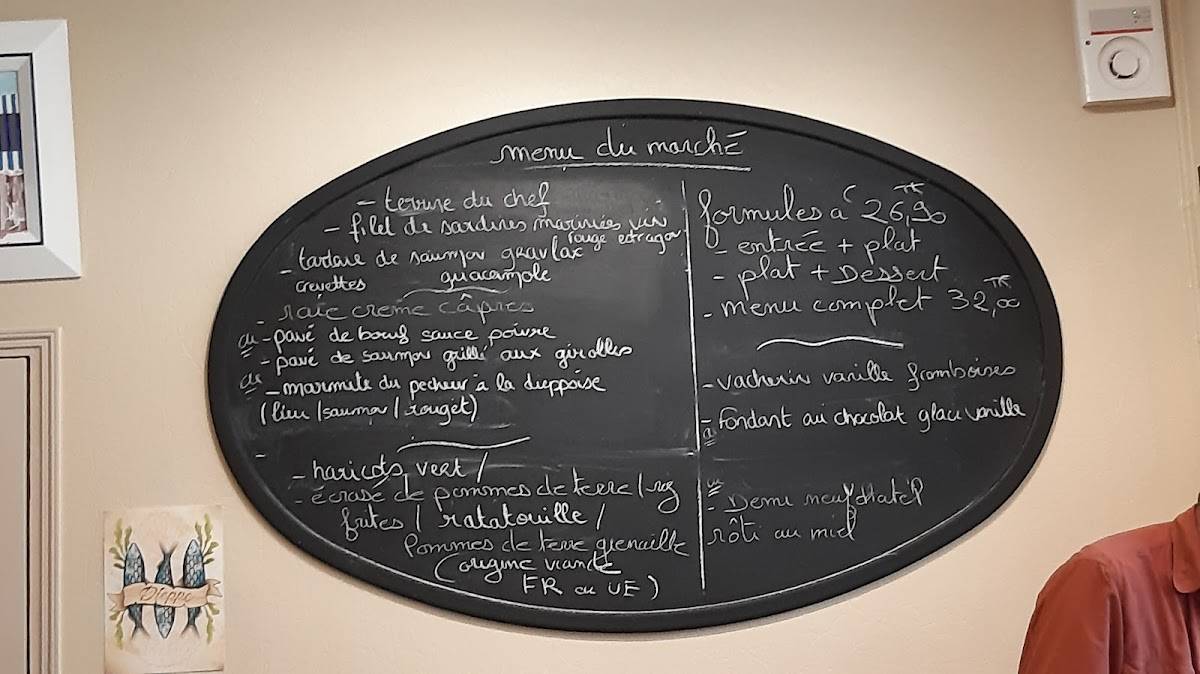 menu du marché
- terrine du chef
- filet de sardines marinées vin
rouge estragon
- tartare de saumon gravlax
crevettes guacamole
- raie creme câpres
ou - pavé de boeuf sauce poivre
- pavé de saumon grillé aux girolles
ou - marmite du pecheur à la dieppoise
(lieu / saumon / rouget)
- haricots vert /
- écrasé de pommes de terre / riz
frites / ratatouille /
Pommes de terre grenaille
(origine viande
FR ou UE)
formules à 26,90
- entrée + plat
- plat + Dessert
- menu complet 32,00
- vacherin vanille framboises
- Fondant au chocolat glace vanille
ou
- Demi neufchatel
rôti au miel
Dieppe